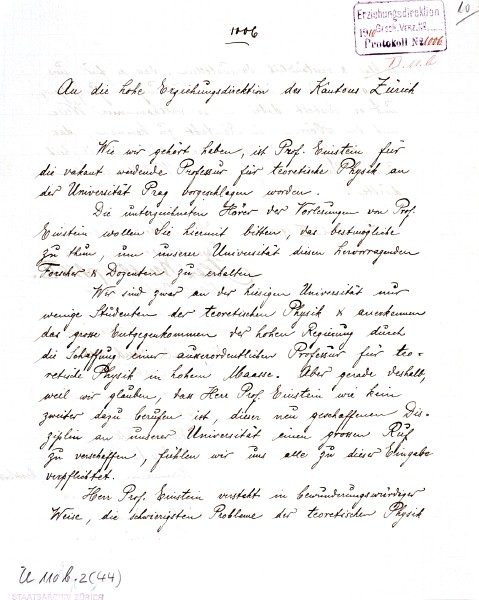 10
1006
Erziehungsdirektion
1910 Gesch. Verz. №
Protokoll № 1006
D. II. b
An die hohe Erziehungsdirektion des Kantons Zürich
Wie wir gehört haben, ist Prof. Einstein für
die vakant werdende Professur für teoretische Physik an
der Universität Prag vorgeschlagen worden.
Die unterzeichneten Hörer der Vorlesungen von Prof.
Einstein wollen Sie hiermit bitten, das bestmögliche
zu thun, um unserer Universität diesen hervorragenden
Forscher & Dozenten zu erhalten
Wir sind zwar an der hiesigen Universität nur
wenige Studenten der teoretischen Physik & anerkennen
das grosse Entgegenkommen der hohen Regierung durch
die Schaffung einer ausserordentlichen Professur für teo-
retische Physik in hohem Maasse. Aber gerade deshalb,
weil wir glauben, das Herr Prof. Einstein wie kein
zweiter dazu berufen ist, dieser neu geschaffenen Dis-
ziplin an unserer Universität einen grossen Ruf
zu verschaffen, fühlen wir uns alle zu dieser Eingabe
verpflichtet.
Herr Prof. Einstein versteht in bewunderungswürdiger
Weise, die schwierigsten Probleme der teoretischen Physik
U 110 b.2 (44)
STAATSARCHIV ZÜRICH